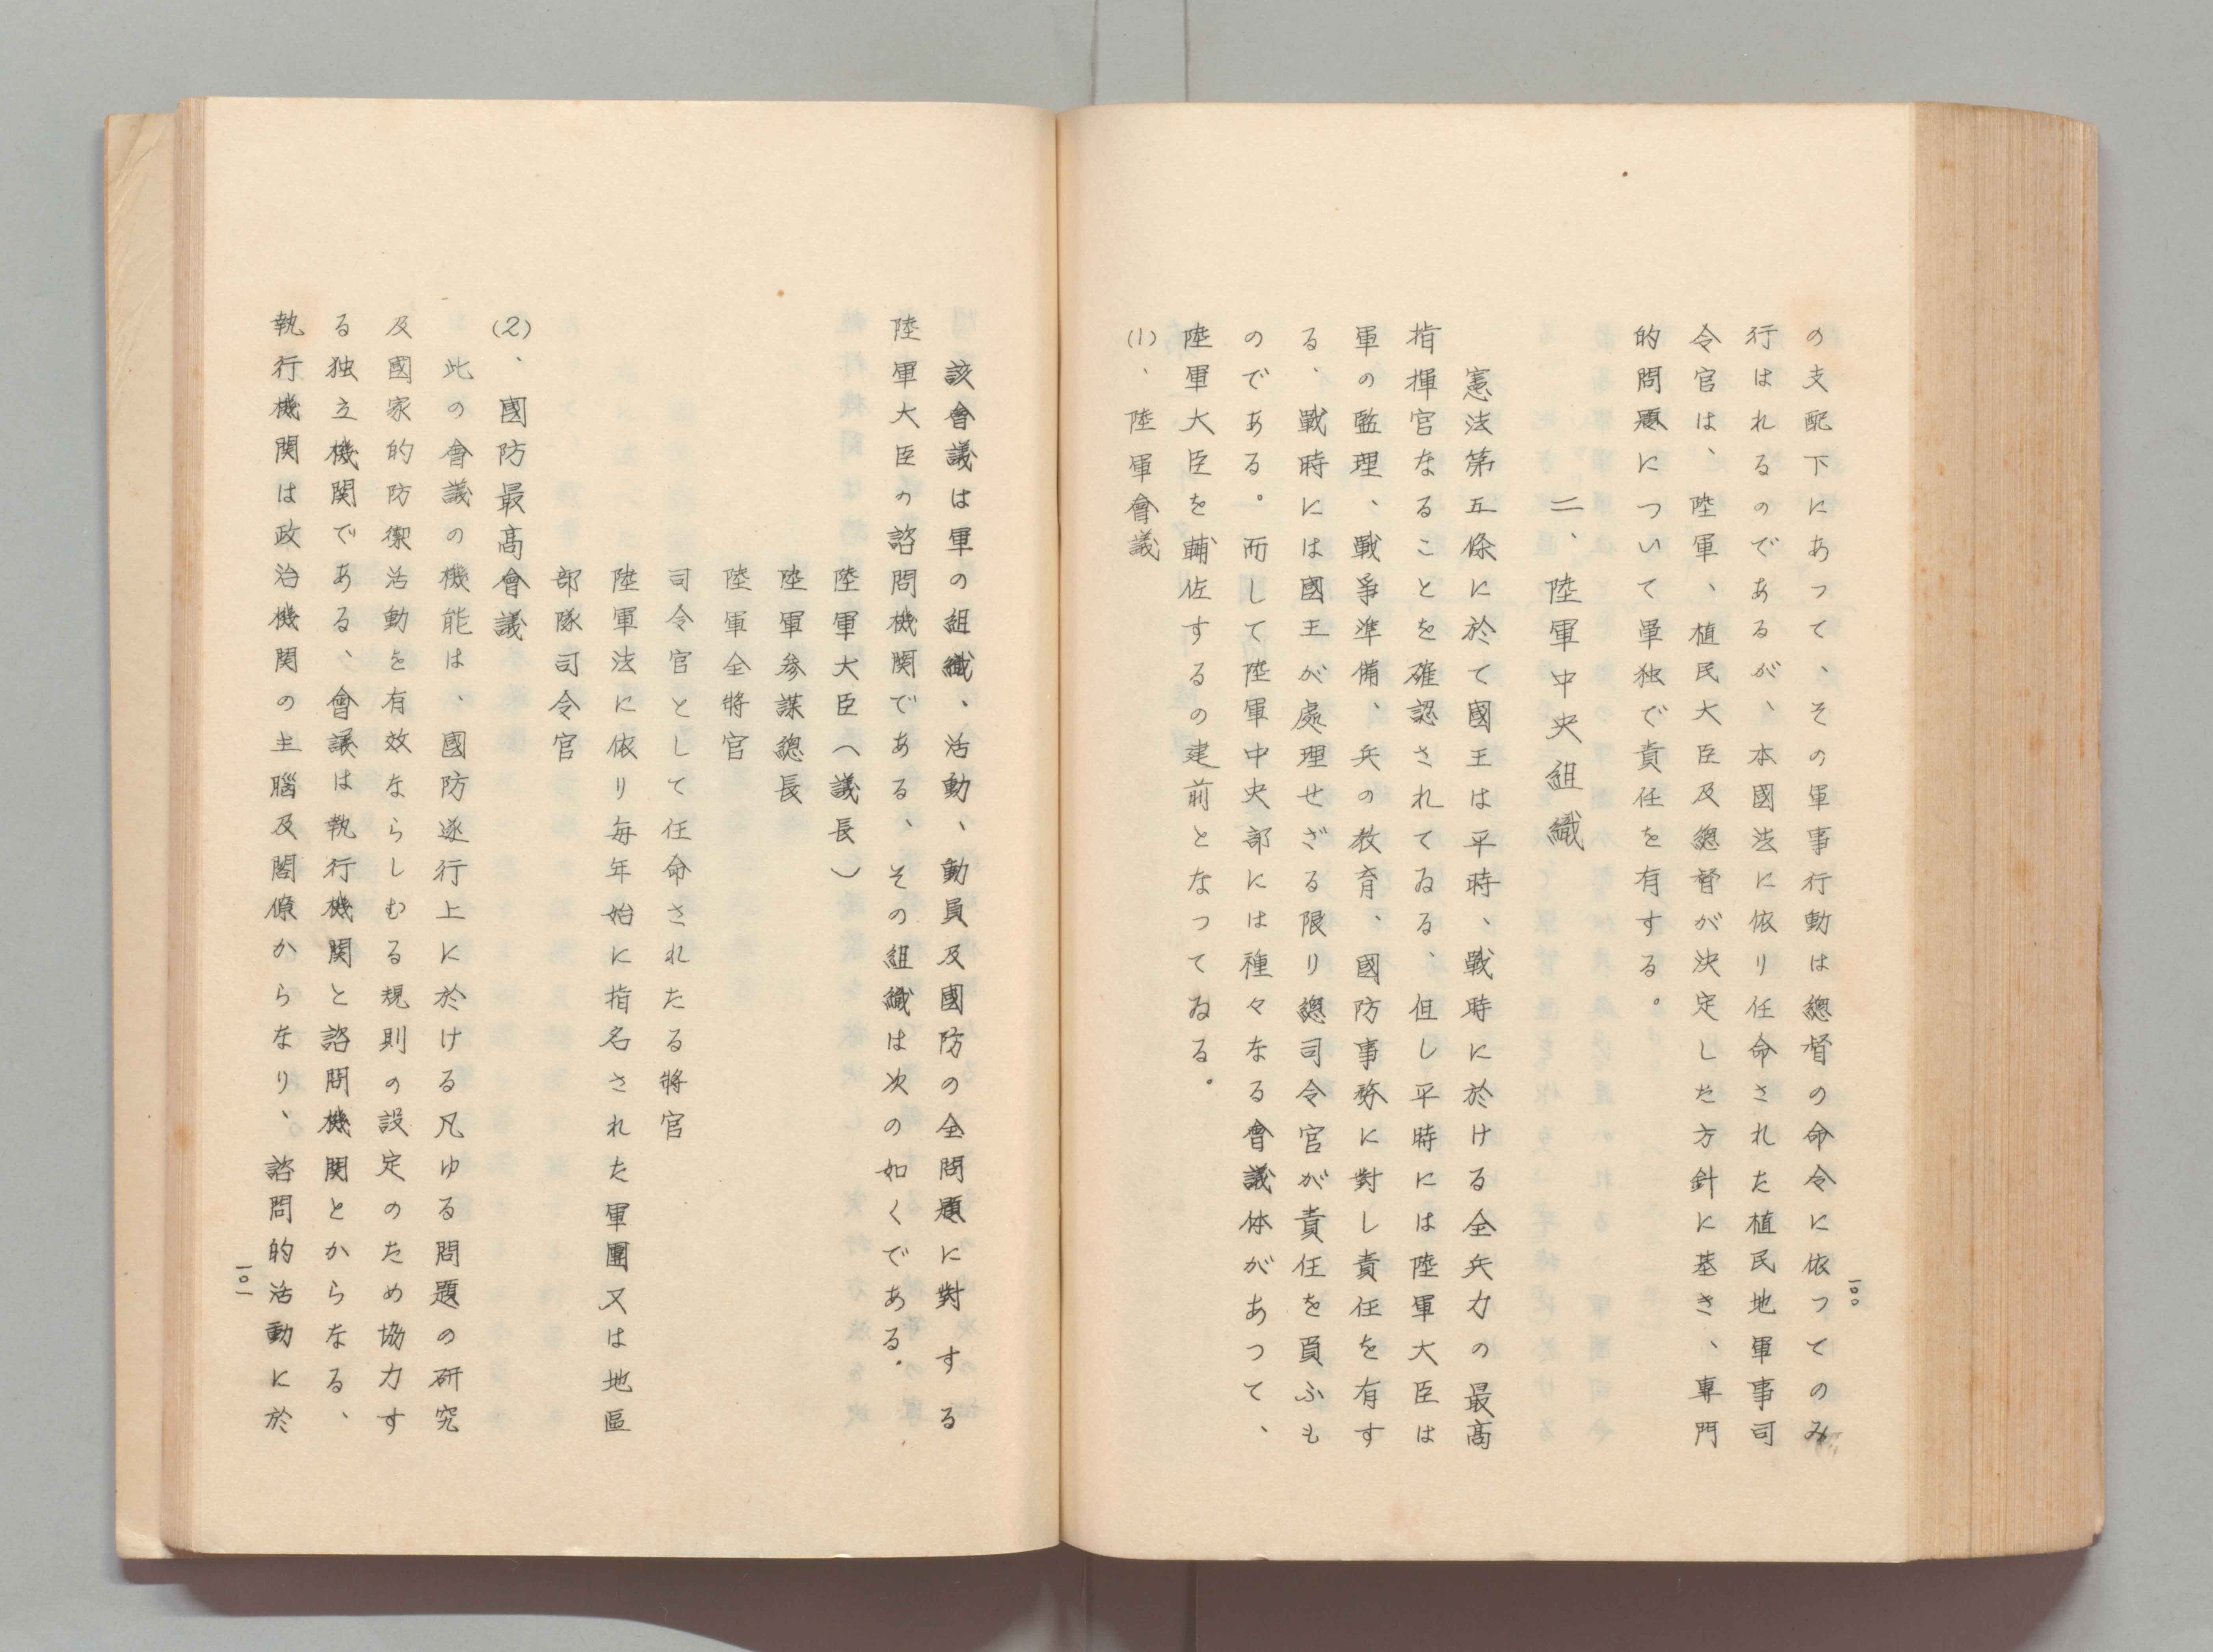 の支配下にあつて、その軍事行動は總督の命令に依つてのみ
行はれるのであるが、本國法に依り任命された植民地軍事司
令官は、陸軍、植民大臣及總督が決定した方針に基き、専門
的問題について単独で責任を有する。
二、陸軍中央組織
憲法第五條に於て國王は平時、戰時に於ける全兵力の最高
指揮官なることを確認されてゐる、但し平時には陸軍大臣は
軍の監理、戰爭準備、兵の教育、國防事務に對し責任を有す
る、戰時には國王が處理せざる限り總司令官が責任を負ふも
のである。而して陸軍中央部には種々なる會議体があつて、
陸軍大臣を輔佐するの建前となつてゐる。
(1)、陸軍會議
一〇〇
該會議は軍の組織、活動、動員及國防の全問題に對する
陸軍大臣の諮問機関である、その組織は次の如くである。
陸軍大臣(議長)
陸軍參謀總長
陸軍全將官
司令官として任命されたる將官
陸軍法に依り毎年始に指名された軍團又は地區
部隊司令官
(2)、國防最高會議
此の會議の機能は、國防遂行上に於ける凡ゆる問題の研究
及國家的防禦活動を有效ならしむる規則の設定のため協力す
る独立機関である、會議は執行機関と諮問機関とからなる、
執行機関は政治機関の主腦及閣僚からなり、諮問的活動に於
一〇一